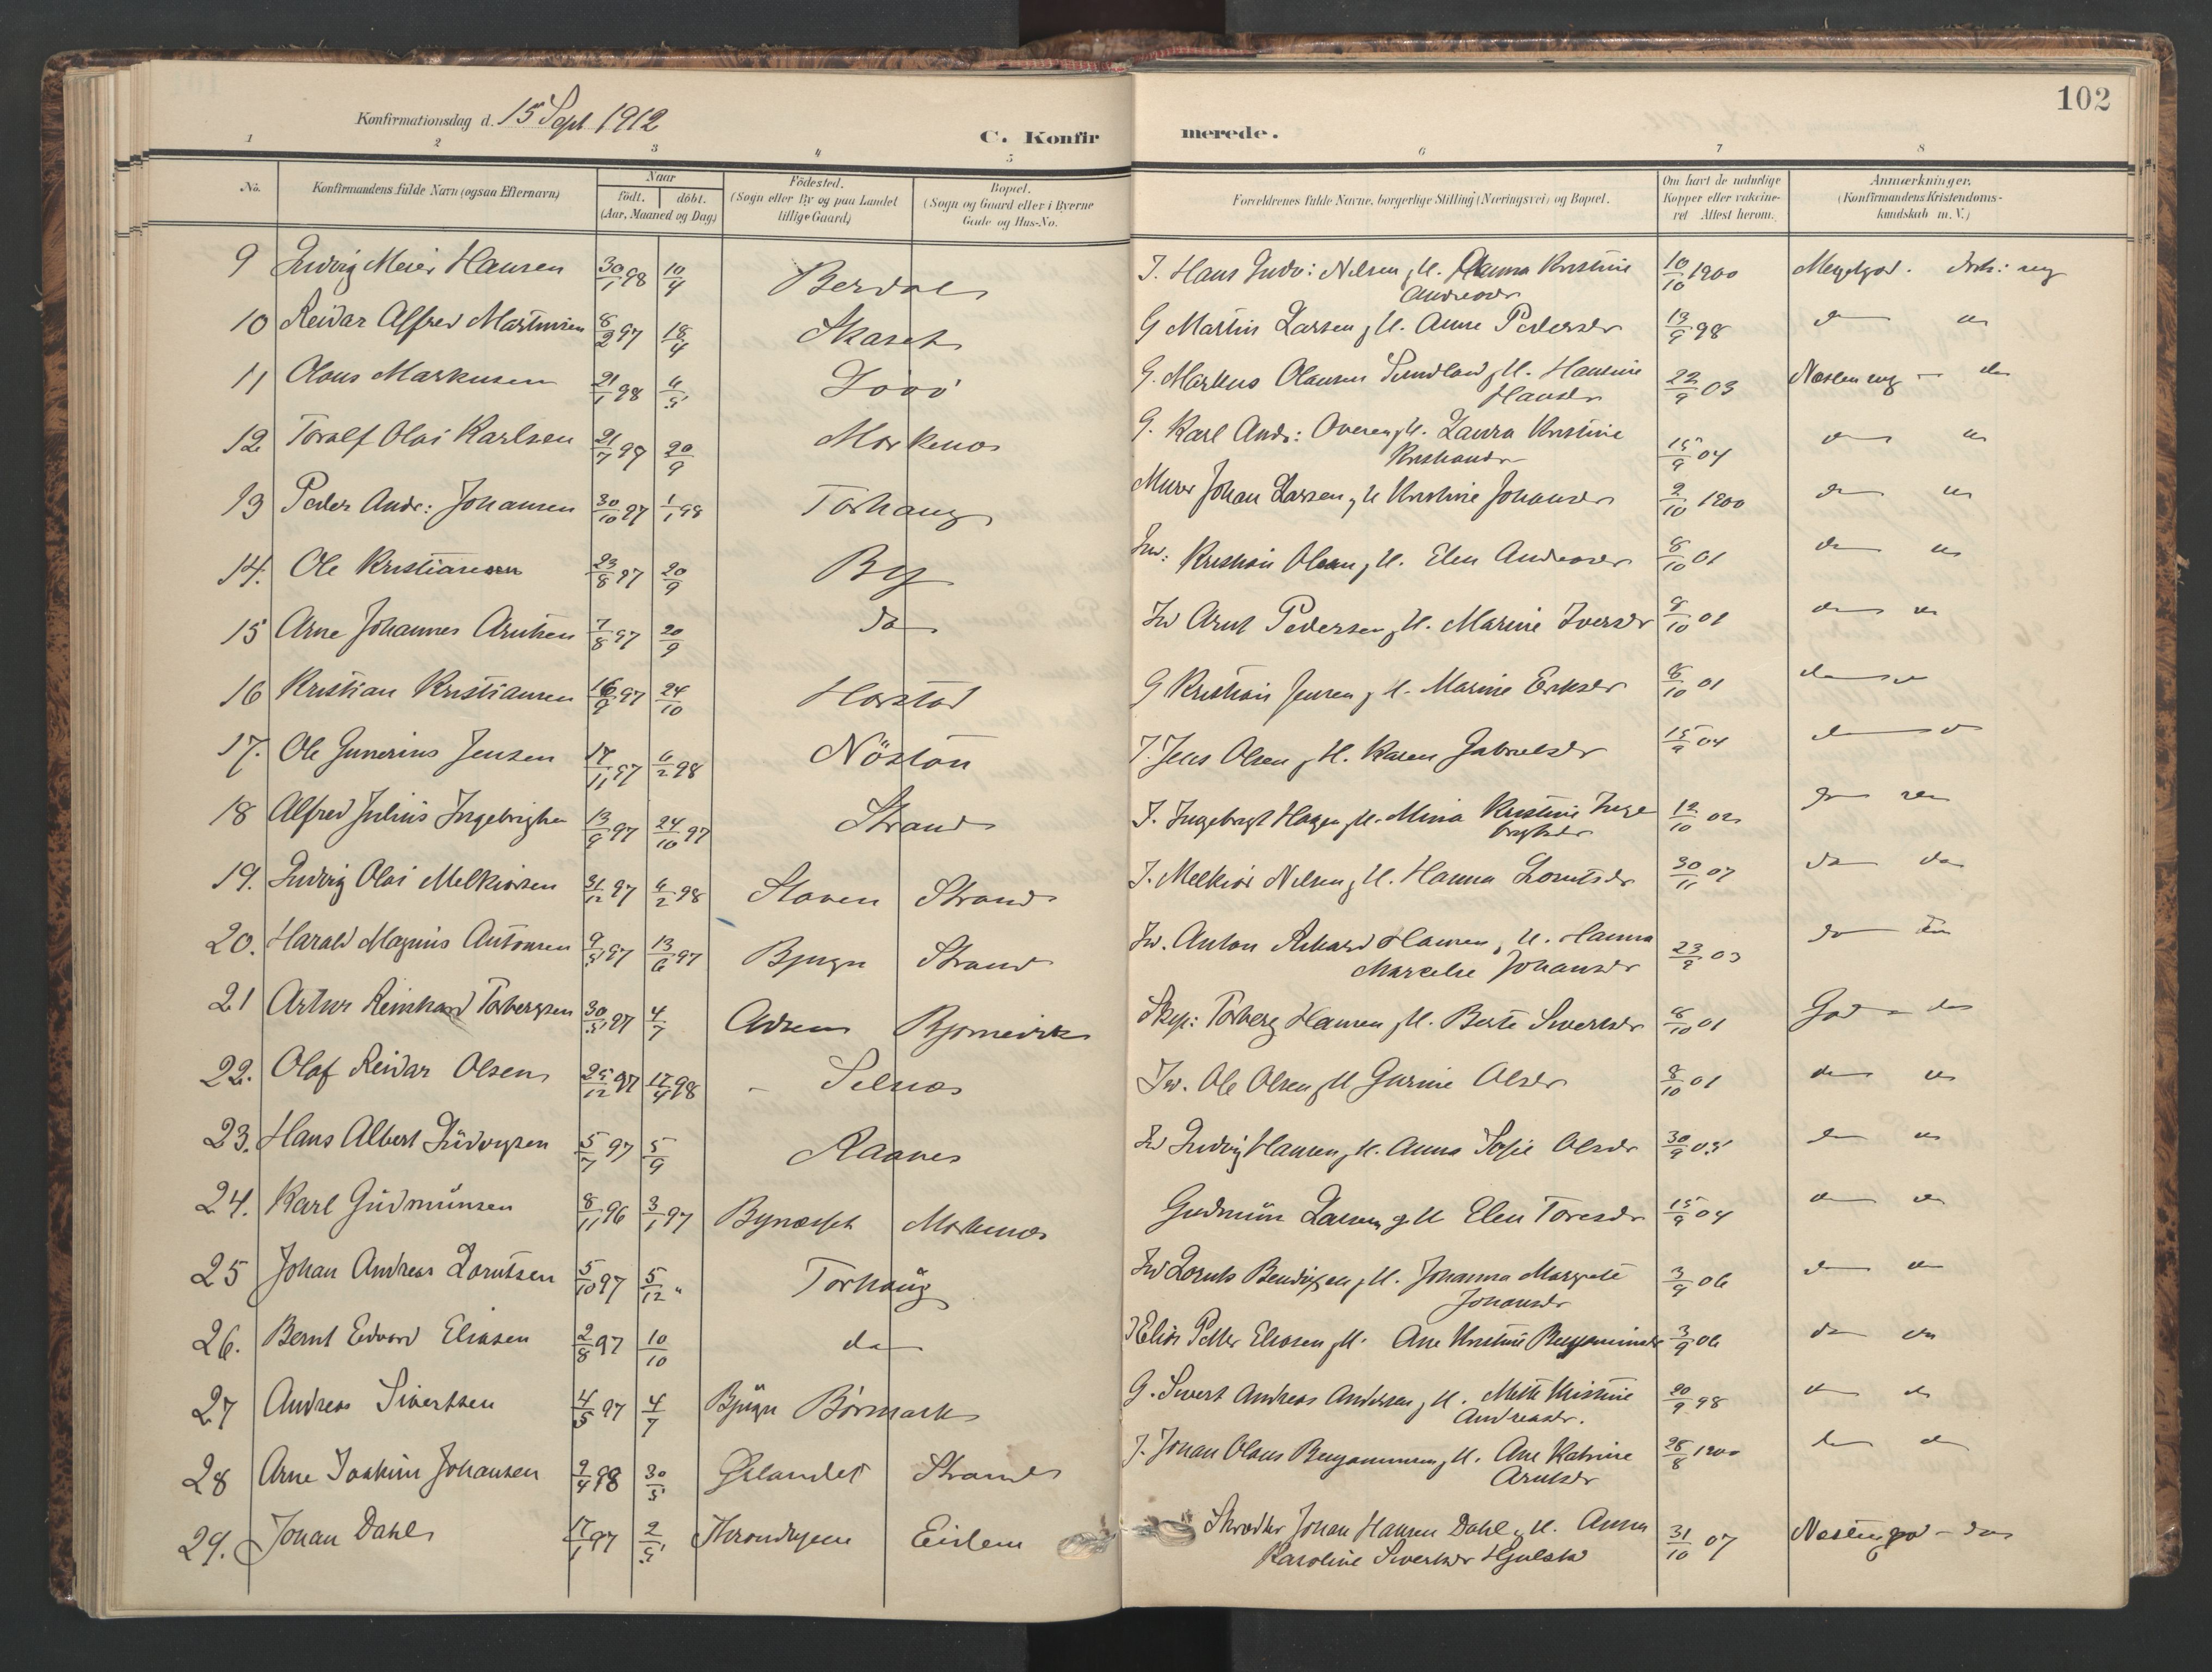 102
Konfirmationsdag d. 15 Sept 1912
C. Konfirmerede.
1 2 3 4 5 6 7 8
No. Konfirmandens fulde Navn (ogsaa Efternavn) Naar født. døbt. (Aar, Maaned og Dag) Fødested. (Sogn eller By og paa Landet tillige Gaard) Bopæl. (Sogn og Gaard eller i Byerne Gade og Hus-No. Forældrenes fulde Navne, borgerlige Stilling (Næringsvei) og Bopæl. Om havt de naturlige Kopper eller vaccineret Attest herom. Anmærkninger. (Konfirmandens Kristendomskundskab m. V.)
9 Ludvig Meier Hansen 30/1 98 10/4 Berdal I. Hans Ludv: Nilsen, H. Anna Kristine Andreasdr 10/10 1900 Megetgod.
10 Reidar Alfred Martinsen 8/2 97 18/4 Skaset G Martin Larsen, H. Anne Pedersdr 13/9 98 do do
11 Olaus Markusen 21/1 98 G. Markus Olausen Sundland, H. Hansine Hansdr 22/9 03 do
12 Toralf Olai Karlsen 21/7 99 20/9 Morkenes G. Karl Andr: H. Laura Kristine 15/9 04 do do
13 Peder Andr: Johansen 30/10 97 1/1 98 Torhaug Murer Johan Larsen, H Kristine Johansdr 2/10 1900 do do
14. Ole Kristiansen 23/8 97 20/9 By Kristian Olsen, H. Elen Andreasdr 8/10 01 do do
15 Arne Johannes Arntsen 7/8 97 20/9 do Arnt Pedersen, H. Marine Iversdr 8/10 01 do do
16 Kristian Kristiansen 16/9 97 24/10 Harstad G Kristian Jensen, H. Marine Eriksdr 8/10 01 do do
17. Ole Gunerius Jensen 17/11 97 6/2 98 Nöstan Jens Olsen, H. Karen Gabrielsdr 15/9 04 do do
18 Alfred Julius Ingebrigtsen 13/9 97 24/10 97 Strand I. Ingebrigt Hagen, H. Mina Kristine Ingebrigtsdr 12/10 02 do do
19. Ludvig Olai Melkiorsen 31/12 97 6/2 98 Strand I. Melkior Nilsen, H. Hanna Lorntsdr 30/11 07 do do
20. Harald Magnus Antonsen 9/5 97 13/6 97 Bjugn Strand Anton Rikard Hansen, H. Hanna Marcelie Johansdr 23/9 03 do do
21 Artur Reinhard Torbergsen 30/5 97 4/7 Bjørnevik Torberg Hansen, H. Berte Sivertsdr 8/10 01 God do
22. Olaf Reidar Olsen 25/12 97 17/4 98 Selnes Ole Olsen, H Gurine Olsdr 8/10 01 do do
23. Hans Albert Lüdvigsen 5/7 97 5/9 Raanes Ludvig Hansen, H. Anna Sofie Olsdr 30/9 03 do do
24. Karl Güdmünsen 8/11 96 3/1 97 Bynesset Morkenes Gudmün Larsen, H Elen Toresdr 15/9 04 do do
25 Johan Andreas Lorntsen 5/10 97 5/12 " Torhaüg Lornts Bendixsen, H. Johanna Margrete Johansdr 3/9 06 do do
26. Bernt Edvard Eliasen 2/8 97 10/10 do Elias Petter Eliasen, H. Ane Kristine Benjaminsdr 3/9 06 do do
27 Andreas Sivertsen 4/5 97 4/7 Bjügn Börmark G. Sivert Andreas Andersen, H. Mette Kristine Andreasdr. 20/9 98 do do
28 Arne Joakim Johansen 2/4 98 30/5 Ørlandet Strand I. Johan Olaus Benjaminsen, H. Ane Katrine Arntsdr 28/8 1900 do do
29. Johan Dahl 17/1 97 2/5 Throndhjem Eidem Skrædder Johan Hansen Dahl, H. Anna Karoline Sivertsdr 31/10 07 Næstengod - do